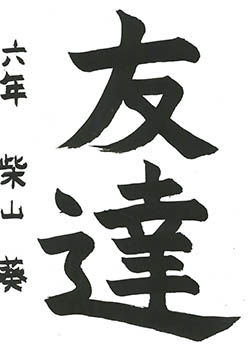 友達
六年 柴山 葵